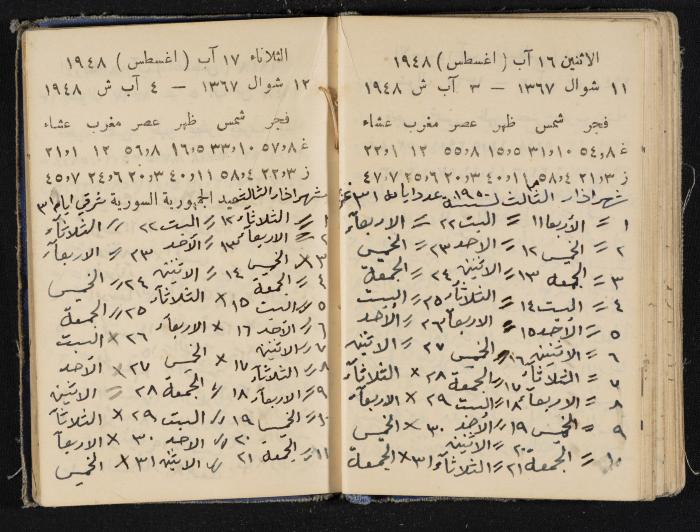 الاثنين ١٦ آب (اغسطس) ١٩٤٨
١١ شوال ١٣٦٧ — ٣ آب ش ١٩٤٨
فجر شمس ظهر عصر مغرب عشاء
غ ٨٫٥٤ ١٠٫٣١ ٥٫١٥ ٨٫٥٥ ١٢ ١٫٢٢
ز ٣٫٢١ ٤٫٥٨ ١١٫٤٠ ٣٫٢٠ ٦٫٢٥ ٧٫٤٧
شهر اذار الثالث لسنة ١٩٥٠ عدد ايامه ٣١
١ = الأربعا ١١ = السبت ٢٢ = الاربعاء
٢ = الخميس ١٢ = الأحد ٢٣ = الخميس
٣ = الجمعة ١٣ = الاثنين ٢٤ = الجمعة
٤ = السبت ١٤ = الثلاثاء ٢٥ = السبت
٥ = الأحد ١٥ = الاربعاء ٢٦ = الأحد
٦ = الاثنين ١٦ = الخميس ٢٧ = الاثنين
٧ = الثلاثاء ١٧ = الجمعة ٢٨ × الثلاثاء
٨ = الاربعاء ١٨ = السبت ٢٩ × الاربعاء
٩ = الخميس ١٩ = الأحد ٣٠ × الخميس
١٠ = الجمعة ٢٠ = الاثنين
٢١ = الثلاثاء ٣١ × الجمعة
الثلاثاء ١٧ آب (اغسطس) ١٩٤٨
١٢ شوال ١٣٦٧ — ٤ آب ش ١٩٤٨
فجر شمس ظهر عصر مغرب عشاء
غ ٨٫٥٧ ١٠٫٣٣ ٥٫١٦ ٨٫٥٦ ١٢ ١٫٢١
ز ٣٫٢٢ ٤٫٥٨ ١١٫٤٠ ٣٫٢٠ ٦٫٢٤ ٧٫٤٥
شهر اذار الثالث الجمهورية السورية شرقي ايام ٣١
١ = الثلاثاء ١٢ = السبت ٢٢ // الثلاثاء
٢ = الاربعاء ١٣ = الأحد ٢٣ = الاربعاء
٣ × الخميس ١٤ = الاثنين ٢٤ // الخميس
٤ = الجمعة ١٥ × الثلاثاء ٢٥ // الجمعة
٥ // السبت ١٦ × الاربعاء ٢٦ × السبت
٦ // الأحد ١٧ × الخميس ٢٧ × الأحد
٧ // الاثنين
٨ = الثلاثاء ١٨ // الجمعة ٢٨ = الاثنين
٩ = الاربعاء ١٩ // السبت ٢٩ × الثلاثاء
١٠ = الخميس ٢٠ // الاحد ٣٠ × الاربعاء
١١ = الجمعة ٢١ // الاثنين ٣١ × الخميس